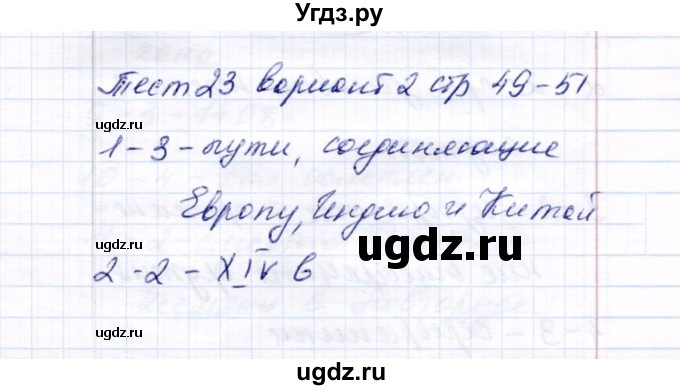 Угдз.ру
Тест 23 вариант 2 стр 49-51
ugdz.ru
1-3-пути, соединяющие
ugdz.ru
Европу, Индию и Китай.
ugdz.ru
2-2-XIV в
ugdz.ru
ugdz.ru
ugdz.ru